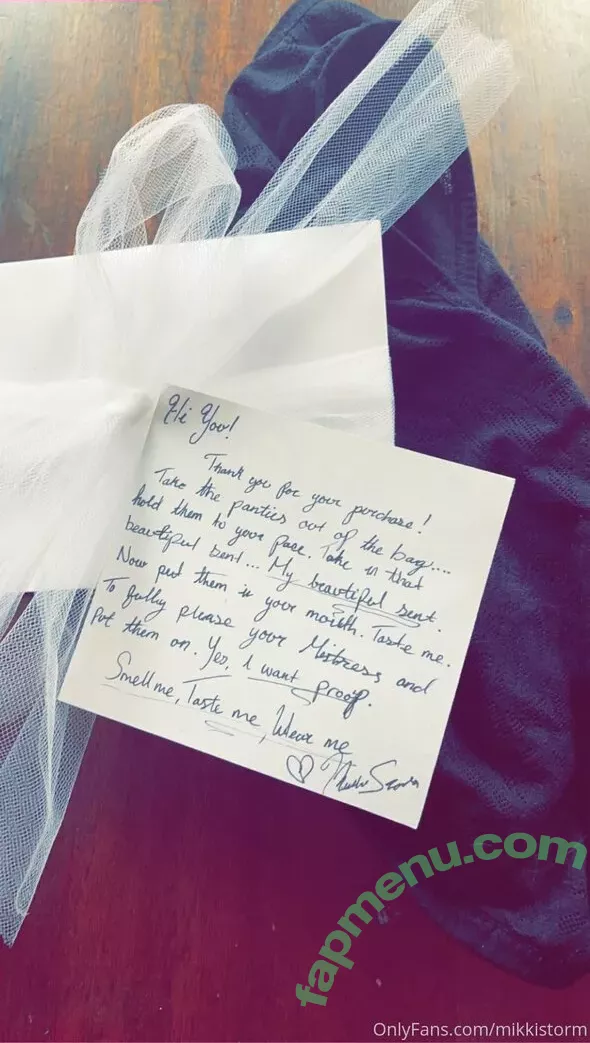 Hi You!
Thank you for your purchase!
Take the panties out of the bag....
hold them to your face. Take in that
beautiful sent... My beautiful sent.
Now put them in your mouth. Taste me.
To fully please your Mistress and
Put them on. Yes, I want proof.
Smell me, Taste me, Wear me
fapmenu.com
OnlyFans.com/mikkistorm